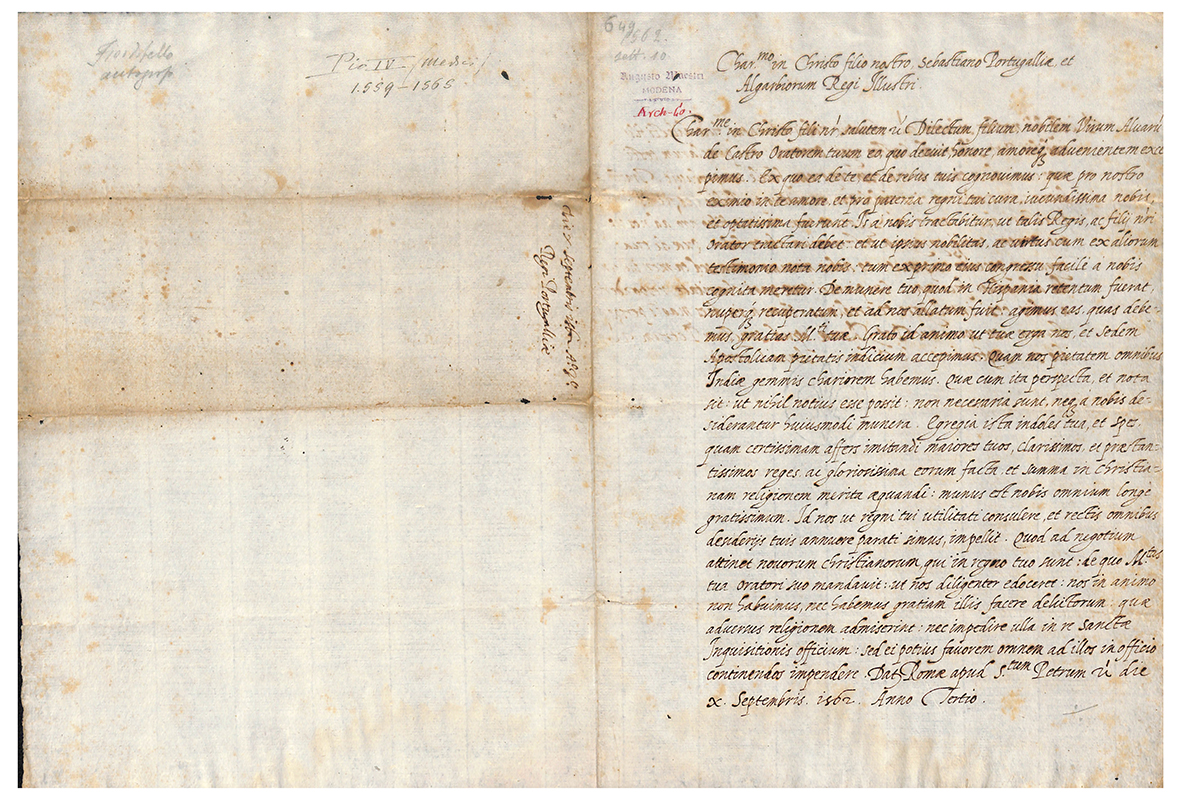 Pio IV - (Medici)
1559-1565
649
1562.
sett. 10
Augusto Maestri
MODENA
Arch-Co.
Regi Portugalliæ
Char.mo in Christo filio nostro, Sebastiano Portugalliæ, et
Algarbiorum Regi Illustri.
Char.me in Christo fili nr̃ salutem ŭ Dilectum filium, nobilem Virum Alvarũ
de Castro Oratorem tuum eo, quo decuit, honore, amoreq; advenientem exce
pimus. Ex quo ea de te, et de rebus tuis cognovimus: quæ pro nostro
eximio in te amore, et pro paterna regni tui cura, iucundissima nobis,
et optatissima fuerunt. Is a nobis tractabitur, ut talis Regis, ac filij nr̃i
Orator tractari debet: et ut ipsius nobilitas, ac virtus cum ex aliorum
testimonio nota nobis: tum ex primo eius congressu facile a nobis
cognita meretur. De munere tuo, quod in Hispania retentum fuerat,
nuperq; recuperatum, et ad nos allatum fuit: agimus eas, quas debe-
mus, gratias M.ti tuæ. Grato id animo ut tuæ erga nos, et sedem
Apostolicam pietatis indicium accepimus. Quam nos pietatem omnibus
Indiæ gemmis chariorem habemus. Quæ cum ita perspecta, et nota
sit: ut nihil notius esse possit: non necessaria sunt, neq; a nobis de-
siderantur huiusmodi munera. Egregia ista indoles tua, et spes,
quam certissimam affers imitandi maiores tuos, clarissimos, et præstan-
tissimos reges, ac gloriosissima eorum facta, et summa in Christia-
nam religionem merita æquandi: munus est nobis omnium longe
gratissimum. Id nos ut regni tui utilitati consulere, et rectis omnibus
desiderijs tuis annuere parati simus, impellit. Quod ad negotium
attinet novorum christianorum, qui in regno tuo sunt: de quo M.tas
tua oratori suo mandavit: ut nos diligenter edoceret: nos in animo
non habuimus, nec habemus gratiam illis facere delictorum, quæ
adversus religionem admiserint: nec impedire ulla in re Sanctæ
Inquisitionis officium: sed ei potius favorem omnem ad illos in officio
continendos impendere. Dat. Romæ apud S.tum Petrum ŭ die
x. Septembris. 1562. Anno Tertio.